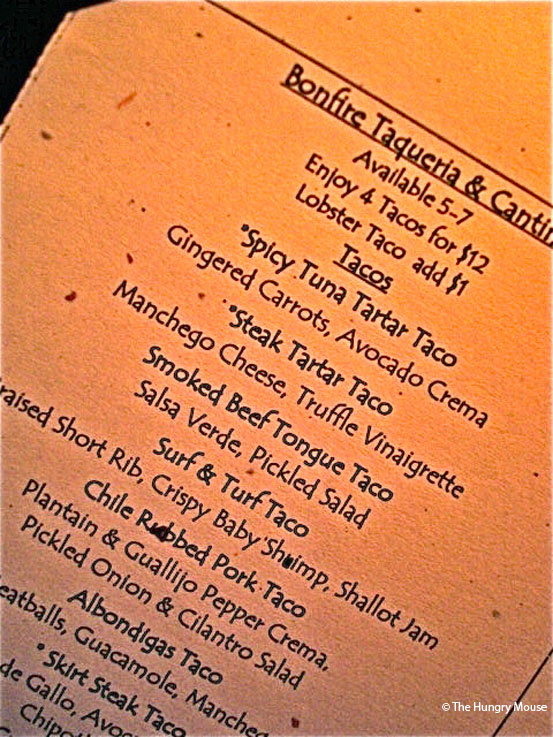 Bonfire Taqueria &
Available 5-7
Enjoy 4 Tacos for $12
Lobster Taco add $1
Tacos
*Spicy Tuna Tartar Taco
Gingered Carrots, Avocado Crema
*Steak Tartar Taco
Manchego Cheese, Truffle Vinaigrette
Smoked Beef Tongue Taco
Salsa Verde, Pickled Salad
Surf & Turf Taco
raised Short Rib, Crispy Baby Shrimp, Shallot Jam
Chile Rubbed Pork Taco
Plantain & Guallijo Pepper Crema,
Pickled Onion & Cilantro Salad
Albondigas Taco
eatballs, Guacamole, Mancheg
*Skirt Steak Taco
de Gallo, Avoc
Chipot
© The Hungry Mouse